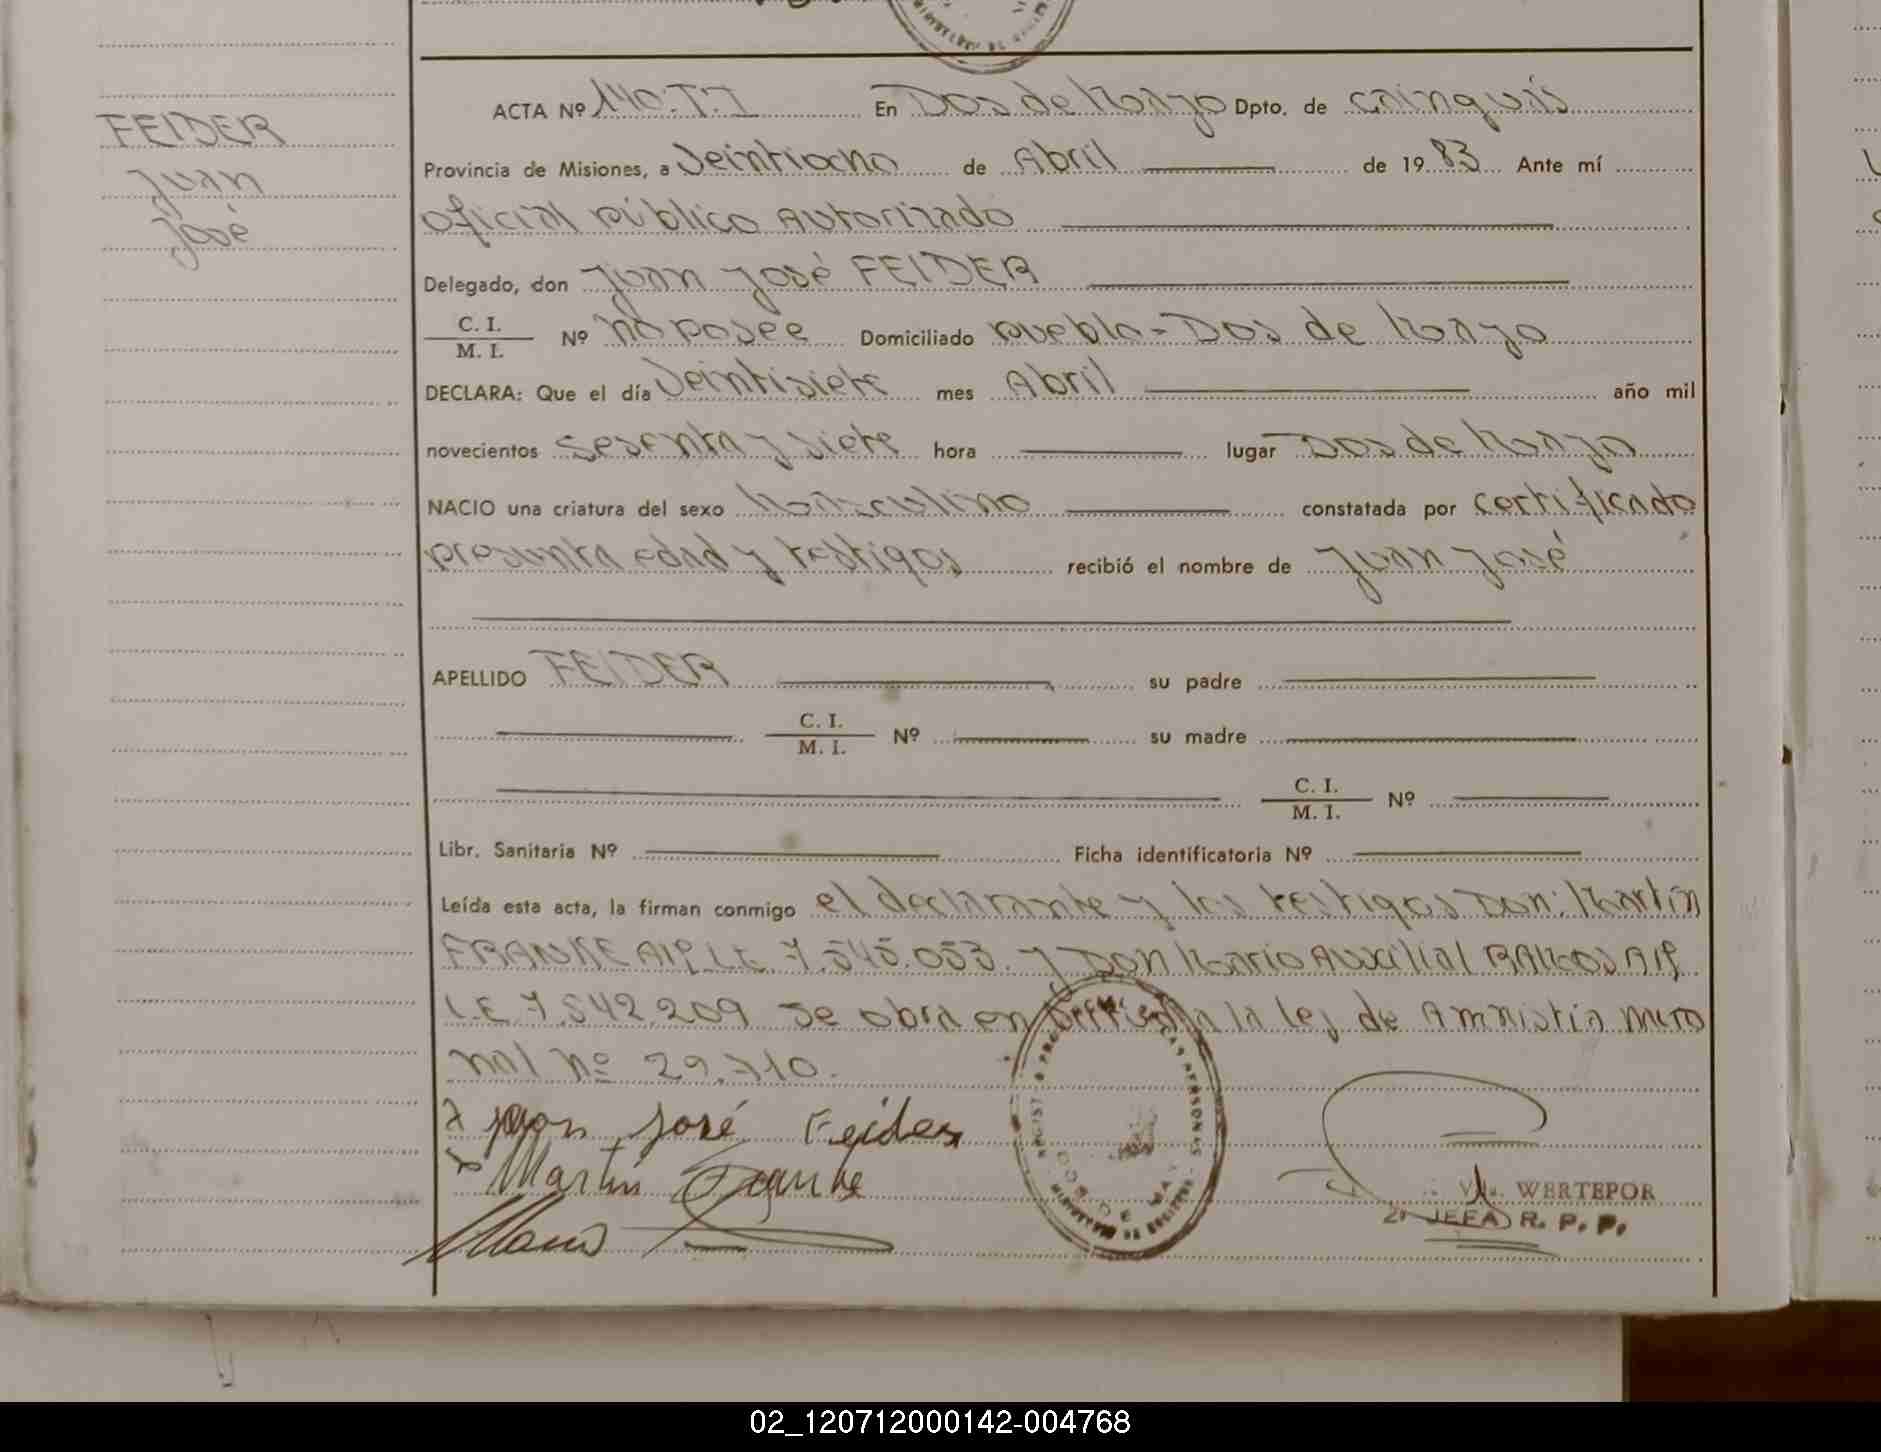 FEIDER
Juan
José
ACTA Nº 140.T.I En Dos de Mayo Dpto. de Cainguás
Provincia de Misiones, a Veintiocho de Abril de 1983 Ante mí
Oficial Público Autorizado
Delegado, don Juan José FEIDER
C. I.
M. I. Nº no posee Domiciliado pueblo - Dos de Mayo
DECLARA: Que el día Veintisiete mes Abril año mil
novecientos sesenta y siete hora lugar Dos de Mayo
NACIO una criatura del sexo Masculino constatada por certificado
presunta edad y testigos recibió el nombre de Juan José
APELLIDO FEIDER su padre
C. I.
M. I. Nº su madre
C. I.
M. I. Nº
Libr. Sanitaria Nº Ficha identificatoria Nº
Leída esta acta, la firman conmigo el declarante y los testigos Don: Martín
FRANKE AIP. L.E. 7.545.053. y Don Mario Auxilial RAMOS AIP
L.E. 7.542.209 Se obra en la Ley de Amnistía
nal nº 29.710.
Juan José Feider
Martín Franke
Mario
DOS DE MAYO
WERTEPOR
JEFA R. P. P.
02_120712000142-004768